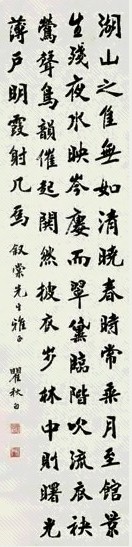 湖山之佳無如清曉春時常乘月至館景
生殘夜水映岑廔而翠黛臨階吹流衣袂
鶯聲鳥韻催起閧然披衣步林中則曙光
薄户明霞射几焉
叙棠先生雅正
瞿秋白